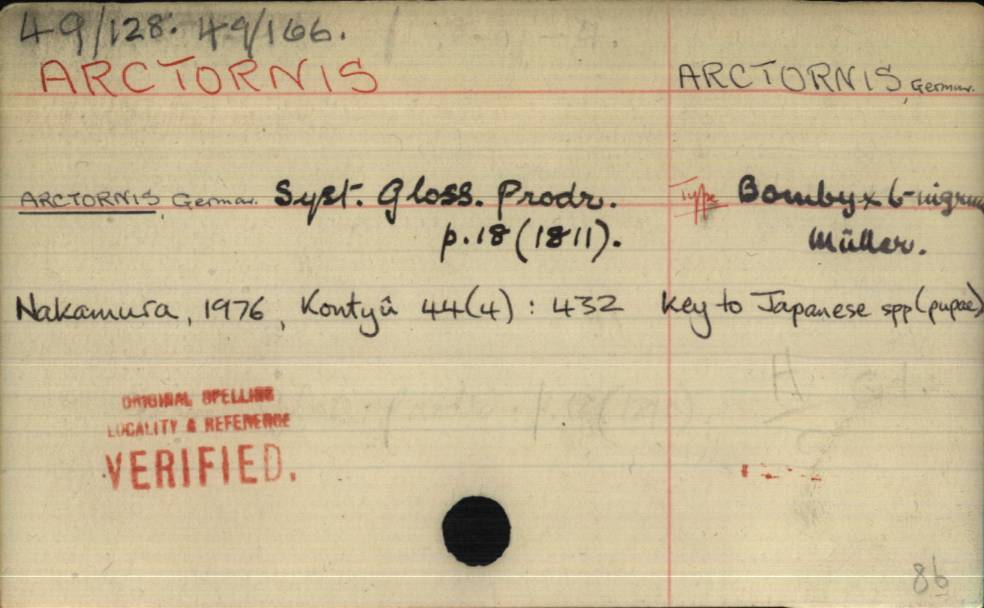 49/128. 49/166.
ARCTORNIS ARCTORNIS, German.
ARCTORNIS, German. Syst. Gloss. Prodr. Type Bombyx L-nigrum
p.18 (1811). Müller.
Nakamura, 1976, Kontyû 44(4) : 432 Key to Japanese spp (pupae)
ORIGINAL SPELLING
LOCALITY & REFERENCE
VERIFIED.
86